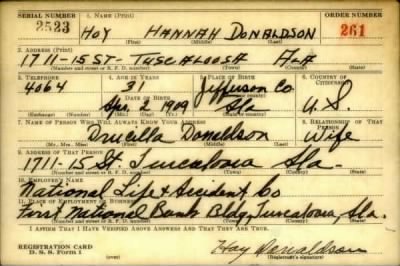 SERIAL NUMBER 1. NAME (Print) ORDER NUMBER
2523 HOY HANNAH DONALDSON 261
(First) (Middle) (Last)
2. ADDRESS (Print)
1711-15 ST- TUSCALOOSA ALA
(Number and street or R. F. D. number) (Town) (County) (State)
3. TELEPHONE 4. AGE IN YEARS 5. PLACE OF BIRTH 6. COUNTRY OF CITIZENSHIP
4064 31 Jefferson Co
DATE OF BIRTH
Apr 2 1909 Ala U.S.
(Exchange) (Number) (Mo.) (Day) (Yr.) (Town or county) (State or country)
7. NAME OF PERSON WHO WILL ALWAYS KNOW YOUR ADDRESS 8. RELATIONSHIP OF THAT PERSON
Drucilla Donaldson Wife
(Mr., Mrs., Miss) (First) (Middle) (Last)
9. ADDRESS OF THAT PERSON
1711-15 St. Tuscaloosa Ala-
(Number and street or R. F. D. number) (Town) (County) (State)
10. EMPLOYER'S NAME
National Life & Accident Co
11. PLACE OF EMPLOYMENT OR BUSINESS
First National Bank Bldg, Tuscaloosa, Ala.
(Number and street or R. F. D. number) (Town) (County) (State)
I AFFIRM THAT I HAVE VERIFIED ABOVE ANSWERS AND THAT THEY ARE TRUE.
REGISTRATION CARD
D. S. S. Form 1 Hoy Donaldson
(over) (Registrant's signature)